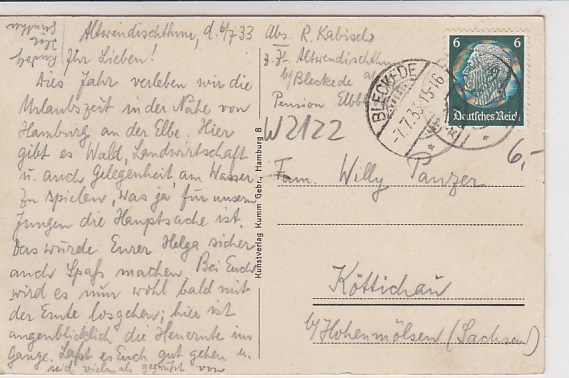 Altwendischthun, d. 6/7 33
Ihr Lieben!
Dies Jahr verleben wir die
Urlaubszeit in der Nähe von
Hamburg an der Elbe. Hier
gibt es Wald, Landwirtschaft
u. auch Gelegenheit am Wasser
zu spielen, was ja für unsern
Jungen die Hauptsache ist.
Das würde Eurer Helga sicher
auch Spaß machen. Bei Euch
wird es nun wohl bald mit
der Ernte losgehen; hier ist
augenblicklich die Heuernte im
Gange. Laßt es Euch gut gehen u.
seid vielmals gegrüßt von
Rudolf
Ilse
Günther
Kunstverlag Kumm Gebr., Hamburg 8
Abs. R. Kabisch
z. Zt. Altwendischthun
b/Bleckede a/
Pension
W2122
BLECKEDE
-7.7.33.15-16
6 6
Deutsches Reich
6,-
Fam. Willy Panzer
Köttichau
b/Hohenmölsen (Sachsen)